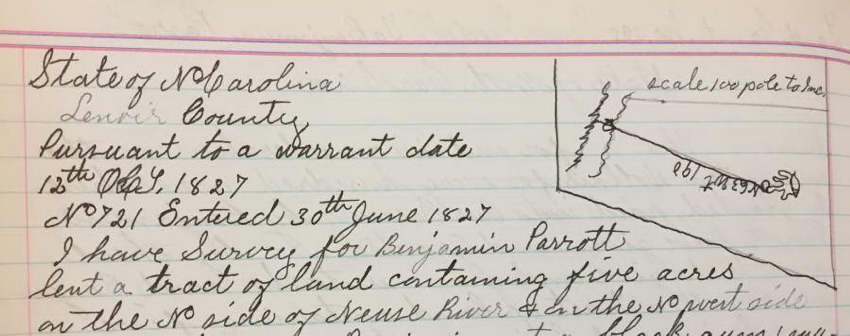 State of No Carolina
Lenoir County
Pursuant to a warrant date
12th Oct, 1827
No 721 Entered 30th June 1827
I have Survey for Benjamin Parrott
lent a tract of land containing five acres
on the No side of Neuse River & on the No west side
a black gum
scale 100 pole to Inc.
N63W 192